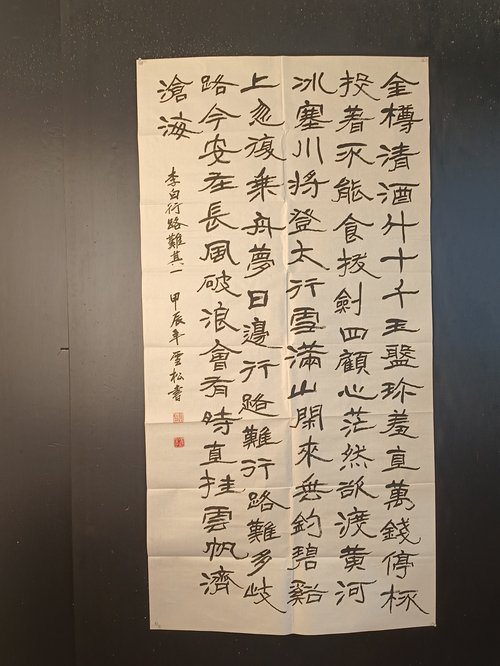 金樽清酒斗十千玉盤珍羞直萬錢停杯
投著不能食拔劍四顧心茫然欲渡黄河
冰塞川將登太行雪滿山閑來垂釣碧谿
上忽復乘舟夢日邊行路難行路難多岐
路今安在長風破浪會有時直挂雲帆濟
滄海
李白行路難其一 甲辰年雪松書